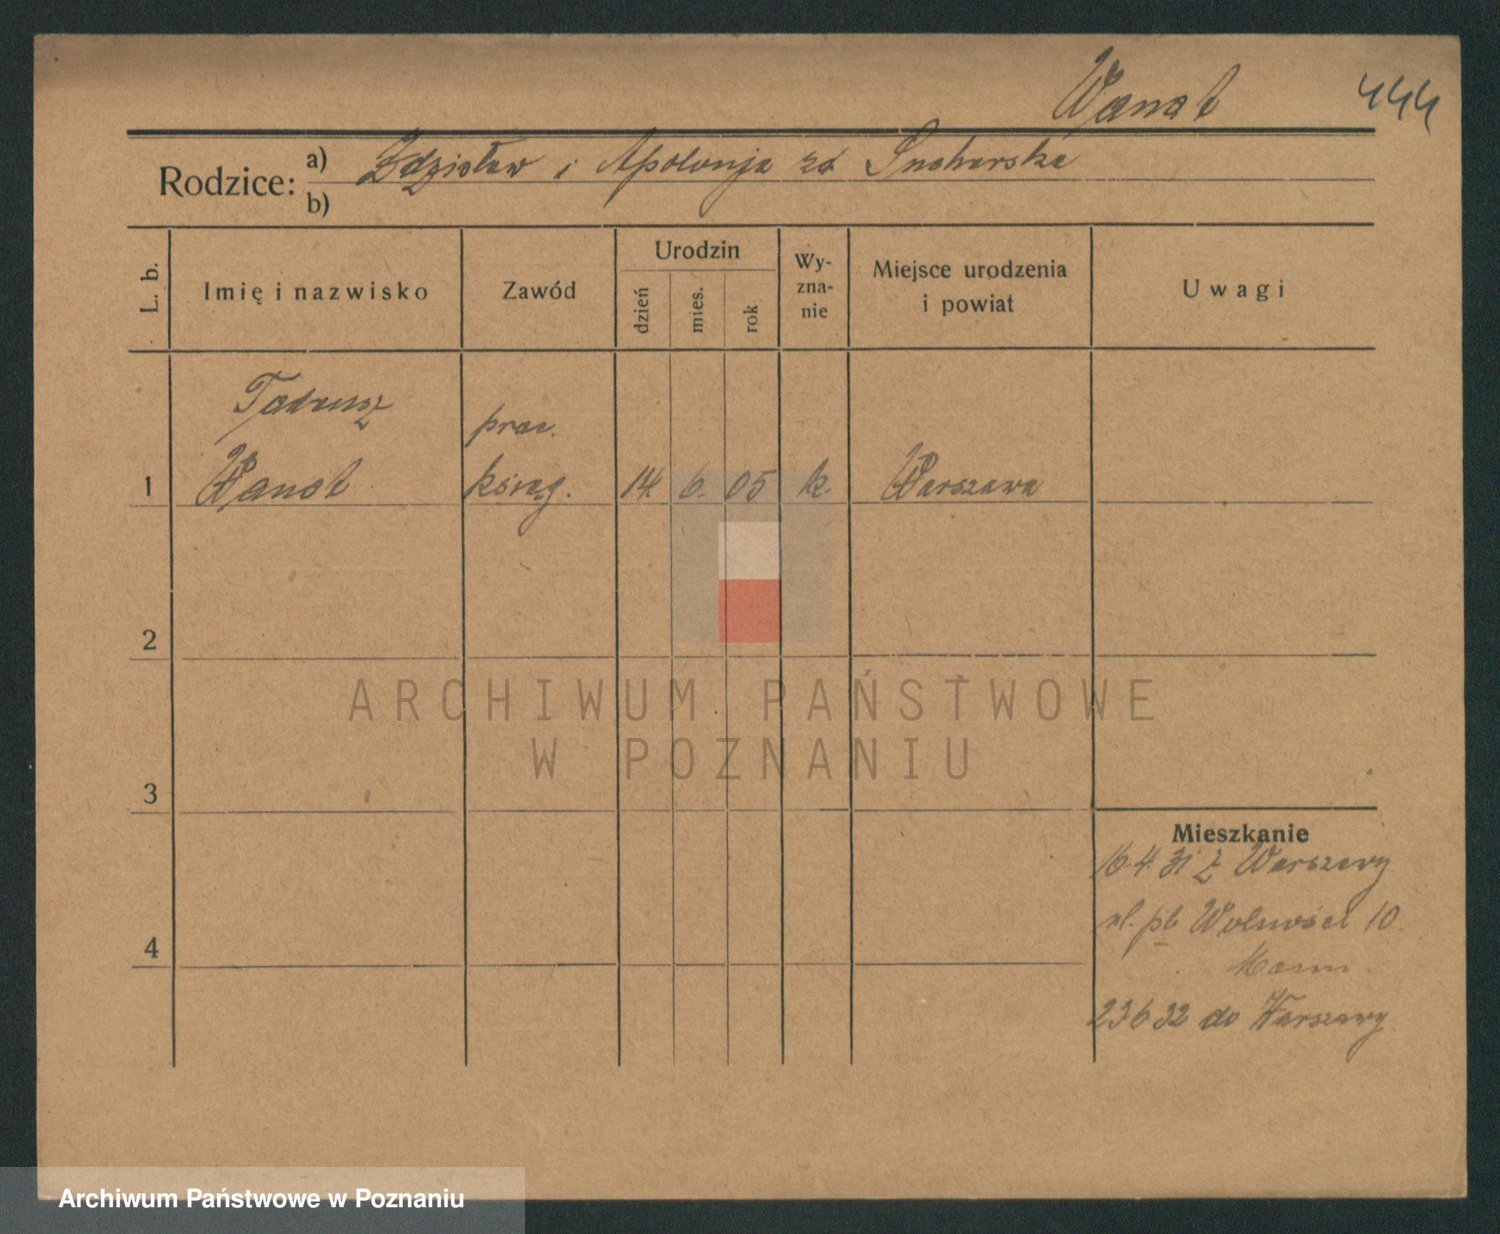 Wanat 444
Rodzice: a) Zdzisław i Apolonja zd Sucharska
b)
L. b. Imię i nazwisko Zawód Urodzin dzień mies. rok Wy-zna-nie Miejsce urodzenia i powiat Uwagi
Tadeusz prac.
1 Wanat księg. 14. 6. 05 k. Warszawa
2
ARCHIWUM PAŃSTWOWE
W POZNANIU
3
Mieszkanie
16.4.31 z Warszawy
ul. pl. Wolności 10.
4
23 6 32 do Warszawy
Archiwum Państwowe w Poznaniu